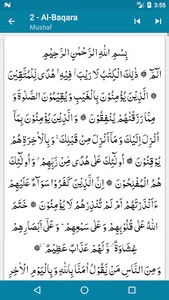 3:55
2 - Al-Baqara
Mushaf
بِسْمِ اللهِ الرَّحْمٰنِ الرَّحِيْمِ
الٓمّٓ ۞ ذٰلِكَ الْكِتٰبُ لَا رَيْبَ ۛ فِيْهِ ۛ هُدًى لِّلْمُتَّقِيْنَ
۞ الَّذِيْنَ يُؤْمِنُوْنَ بِالْغَيْبِ وَيُقِيْمُوْنَ الصَّلٰوةَ
وَمِمَّا رَزَقْنٰهُمْ يُنْفِقُوْنَ ۞ وَالَّذِيْنَ يُؤْمِنُوْنَ بِمَآ
اُنْزِلَ اِلَيْكَ وَمَآ اُنْزِلَ مِنْ قَبْلِكَ ۚ وَبِالْاٰخِرَةِ هُمْ
يُوْقِنُوْنَ ۞ اُولٰٓئِكَ عَلٰى هُدًى مِّنْ رَّبِّهِمْ ۙ وَاُولٰٓئِكَ
هُمُ الْمُفْلِحُوْنَ ۞ اِنَّ الَّذِيْنَ كَفَرُوْا سَوَآءٌ عَلَيْهِمْ
ءَاَنْذَرْتَهُمْ اَمْ لَمْ تُنْذِرْهُمْ لَا يُؤْمِنُوْنَ ۞ خَتَمَ
اللهُ عَلٰى قُلُوْبِهِمْ وَعَلٰى سَمْعِهِمْ ۗ وَعَلٰٓى اَبْصَارِهِمْ
غِشَاوَةٌ ۚ وَّلَهُمْ عَذَابٌ عَظِيْمٌ ۞
وَمِنَ النَّاسِ مَنْ يَّقُوْلُ اٰمَنَّا بِاللهِ وَبِالْيَوْمِ الْاٰخِرِ